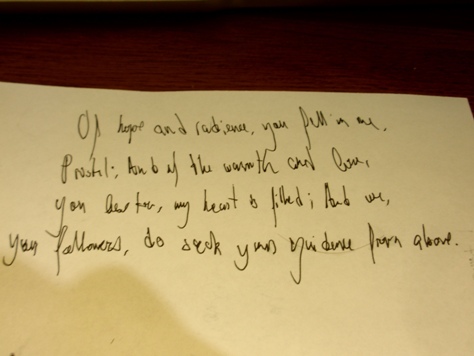 Of hope and radience, you fill in me,
And of the warmth and love,
you my heart is filled; And we,
your followers, do seek your guidence from above.